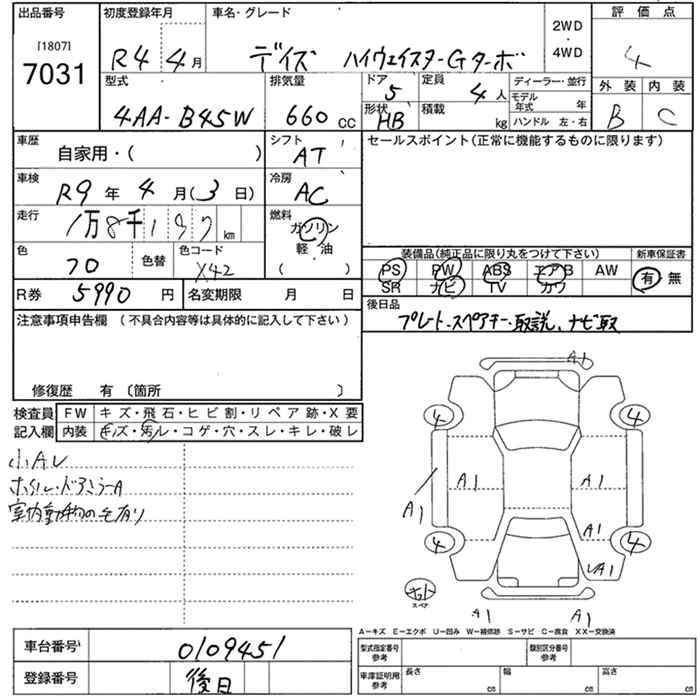 出品番号 初度登録年月 車名・グレード 2WD ・ 4WD 評価点
[1807]
7031
R4 4月 デイズ ハイウェイスターGターボ 4
型式 排気量 ドア 定員 ディーラー・並行 外装 内装
4AA-B45W 660 cc 5 4人 モデル年式 年 B C
形状 HB 積載 kg ハンドル 左・右
車歴 シフト セールスポイント(正常に機能するものに限ります)
自家用・( ) AT
車検 冷房
R9年 4月(3日) AC
走行 燃料
1万8千1 km ガソリン
軽・油
( )
色 色替 色コード
70 X42
装備品(純正品に限り丸をつけて下さい) 新車保証書
PS PW ABS エアB AW 有 無
SR ナビ TV カワ
R券 5990円 名変期限 月 日
後日品
プレート・スペアキー・取説、ナビ取
注意事項申告欄 (不具合内容等は具体的に記入して下さい)
修復歴 有〔箇所 〕
検査員 FW キズ・飛石・ヒビ割・リペア跡・X要
記入欄 内装 キズ・汚レ・コゲ・穴・スレ・キレ・破レ
小Aレ
ホイル・ドアミラーA
室内動物の毛有り
A1
4 4
A1 A1
A1
A1
4 4
A1
キット
スペア
A1 A1
A-キズ E-エクボ U-凹み W-補修跡 S-サビ C-腐食 XX-交換済
車台番号 0109451
型式指定番号 参考 類別区分番号 参考
登録番号 後日
車庫証明用 参考 長さ cm 幅 cm 高さ cm